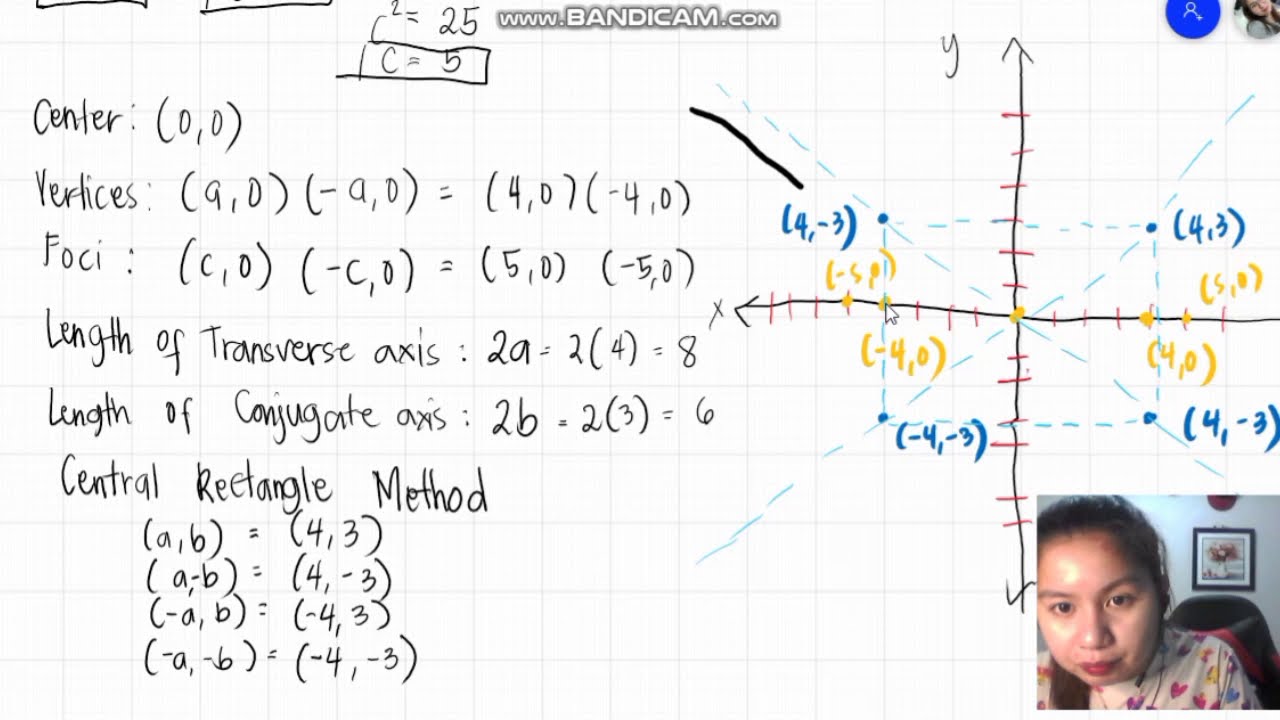 www.BANDICAM.com
c² = 25
c = 5
Center: (0,0)
Vertices: (a,0) (-a,0) = (4,0) (-4,0)
Foci : (c,0) (-c,0) = (5,0) (-5,0)
Length of Transverse axis : 2a = 2(4) = 8
Length of Conjugate axis : 2b = 2(3) = 6
Central Rectangle Method
(a,b) = (4,3)
(a,-b) = (4,-3)
(-a,b) = (-4,3)
(-a,-b) = (-4,-3)
y
(4,-3)
(4,3)
(-5,0)
(5,0)
x
(-4,0)
(4,0)
(-4,-3)
(4,-3)